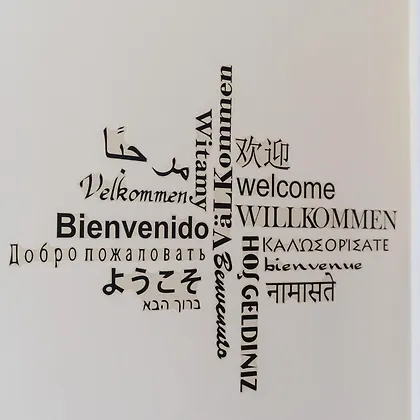 مرحبًا
Velkommen
Bienvenido
Добро пожаловать
ようこそ
ברוך הבא
Witamy
VäLLKommen
Benvenuto
欢迎
welcome
WILLKOMMEN
ΚΑΛΏΣΟΡΊΣΑΤΕ
bienvenue
नामास्ते
HOŞ GELDINIZ